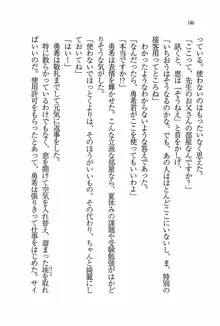 146
っている。使わないのはもったいないなぁ、なんて思えた。
「いちおうはそうねぇ。でも、あの人はほとんどいないし、いまは、特別の
「先生のお父さんの部屋なんですか?」
訊くと、恵は「そうねえ」と首をかしげた。
接客用ってとこかしら」
なんだか、よくわからないような答えであった。
「もしよかったら、勇希君が使ってもいいわよ」
「本当ですか!?」
勇希は表情を輝かせた。こんな立派な部屋なら、夏休みの課題や受験勉強がはかど
「使わないでほっとくよりは、そのほうがいいもの。その代わり、ちゃんと綺麗にし
ておいてね」
「はいっ!」
勇希は敬礼までして元気に返事をした。
特に散らかっているわけでもないので、窓を開けて空気を入れ替え、溜まった埃を
ばいいのだ。使用許可をもらったことで、勇希は張りきって仕事をはじめた。サイ